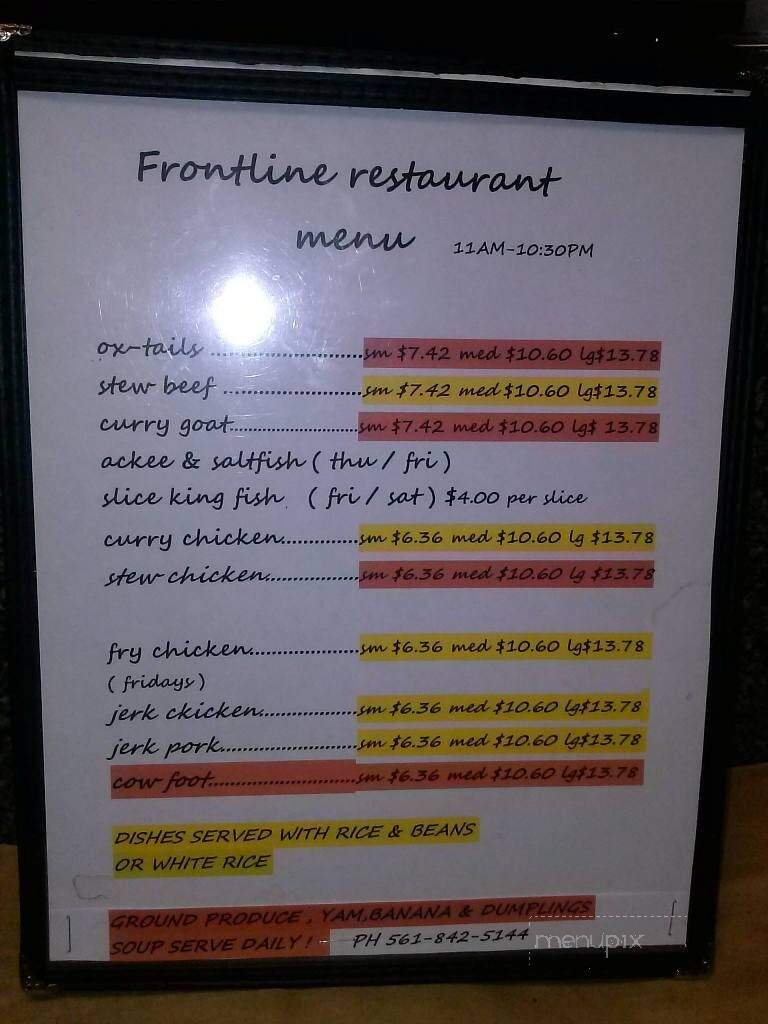 Frontline restaurant
menu 11AM-10:30PM
ox-tails ........................sm $7.42 med $10.60 lg$13.78
stew beef ......................sm $7.42 med $10.60 lg$13.78
curry goat.....................sm $7.42 med $10.60 lg$ 13.78
ackee & saltfish ( thu / fri )
slice king fish. ( fri / sat ) $4.00 per slice
curry chicken............sm $6.36 med $10.60 lg $13.78
stew chicken..............sm $6.36 med $10.60 lg $13.78
fry chicken.................sm $6.36 med $10.60 lg$13.78
( fridays )
jerk ckicken...............sm $6.36 med $10.60 lg$13.78
jerk pork.....................sm $6.36 med $10.60 lg$13.78
cow foot......................sm $6.36 med $10.60 lg$13.78
DISHES SERVED WITH RICE & BEANS
OR WHITE RICE
GROUND PRODUCE , YAM,BANANA & DUMPLINGS
SOUP SERVE DAILY ! - PH 561-842-5144
menupix